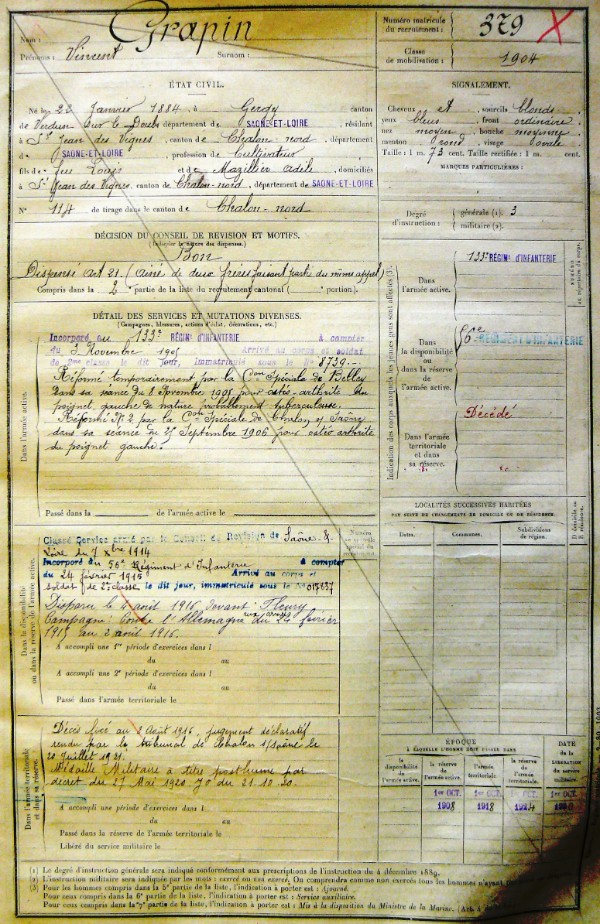 Nom : Grapin
Prénoms : Vincent Surnom :
Numéro matricule du recrutement : 379
Classe de mobilisation : 1904
ÉTAT CIVIL.
Né le 23 Janvier 1884, à Gergy canton
de Verdun sur le Doubs département de SAÔNE-ET-LOIRE, résidant
à St Jean des Vignes, canton de Chalon-nord, département
d SAONE-ET-LOIRE profession de Cultivateur
fils de feu Louis et de Mazillier Adèle, domiciliés
à St Jean des Vignes, canton de Chalon-nord, département de SAÔNE-ET-LOIRE
N° 114 de tirage dans le canton de Chalon-nord
SIGNALEMENT.
Cheveux et sourcils blonds
yeux bleus front ordinaire
nez moyen bouche moyenne
menton rond visage ovale
Taille : 1 m. 73 cent. Taille rectifiée : 1 m. cent.
MARQUES PARTICULIÈRES :
Degré d'instruction : générale (1). 3
militaire (2).
DÉCISION DU CONSEIL DE REVISION ET MOTIFS.
(Indiquer la nature des dispenses.)
Bon
Dispensé Art 21. (Ainé de deux frères faisant partie du même appel)
Compris dans la 2e partie de la liste du recrutement cantonal ( portion).
DÉTAIL DES SERVICES ET MUTATIONS DIVERSES.
(Campagnes, blessures, actions d'éclat, décorations, etc.)
Incorporé au 133e RÉGIMt D'INFANTERIE à compter
du Novembre 1905 Arrivé au corps et soldat
de 2me classe le dit jour, immatriculé sous le No 8739.
Réformé temporairement par la Con Spéciale de Belley
dans sa séance du 8 Novembre 1905 pour ostéo-arthrite du
poignet gauche de nature probablement tuberculeuse.
Réformé No 2 par la Con Spéciale de Chalon s/ Saône
dans sa séance du Septembre 1906 pour ostéo arthrite
du poignet gauche.
Dans l'armée active.
Passé dans la de l'armée active le
Indication des corps auxquels les jeunes gens sont affectés (3).
Dans l'armée active. 133e RÉGIMt D'INFANTERIE
Dans la disponibilité ou dans la réserve de l'armée active. 56me RÉGIMENT D'INFANTERIE
Décédé
Dans l'armée territoriale et dans sa réserve.
LOCALITÉS SUCCESSIVES HABITÉES
PAR SUITE DE CHANGEMENTS DE DOMICILE OU DE RÉSIDENCE.
Dates. Communes. Subdivisions de région.
Dans la disponibilité ou dans la réserve de l'armée active.
Classé Service armé par le Conseil de Revision de Saône &
Loire du 7 Xbre 1914
Incorporé du 56e Régiment d'Infanterie à compter
du 24 février 1915 Arrivé au corps et
soldat de 2e classe le dit jour, immatriculé sous le No 017437
Disparu le août 1916 devant Fleury
Campagne Contre l'Allemagne aux armées du 24 février
1915 au 2 août 1916.
A accompli une 1re période d'exercices dans l
du au
A accompli une 2e période d'exercices dans l
du au
Passé dans l'armée territoriale le
Dans l'armée territoriale et dans sa réserve.
Décès fixé au 2 Août 1916, jugement déclaratif
rendu par le tribunal de Chalon s/Saône le
juillet 1921.
Médaille Militaire à titre posthume par
décret du 27 Mai 1920. JO du 21.10.20.
A accompli une période d'exercices dans l
du au
Passé dans la réserve de l'armée territoriale le
Libéré du service militaire le
ÉPOQUE
À LAQUELLE L'HOMME DOIT PASSER DANS
DATE de la LIBÉRATION du service militaire.
la disponibilité de l'armée active. la réserve de l'armée active. l'armée territoriale. la réserve de l'armée territoriale.
1er OCT. 1908 1er OCT. 1918 1er OCT. 1924 1er OCT.
(1) Le degré d'instruction générale sera indiqué conformément aux prescriptions de l'instruction du 4 décembre 1889.
(2) L'instruction militaire sera indiquée par les mots : exercé ou non exercé. On comprendra comme non exercés tous les hommes n'ayant
(3) Pour les hommes compris dans la 5e partie de la liste, l'indication à porter est : Ajourné.
Pour ceux compris dans la 6e partie de la liste, l'indication à porter est : Service auxiliaire.
Pour ceux compris dans la 7e partie de la liste, l'indication à porter est : Mis à la disposition du Ministre de la Marine.